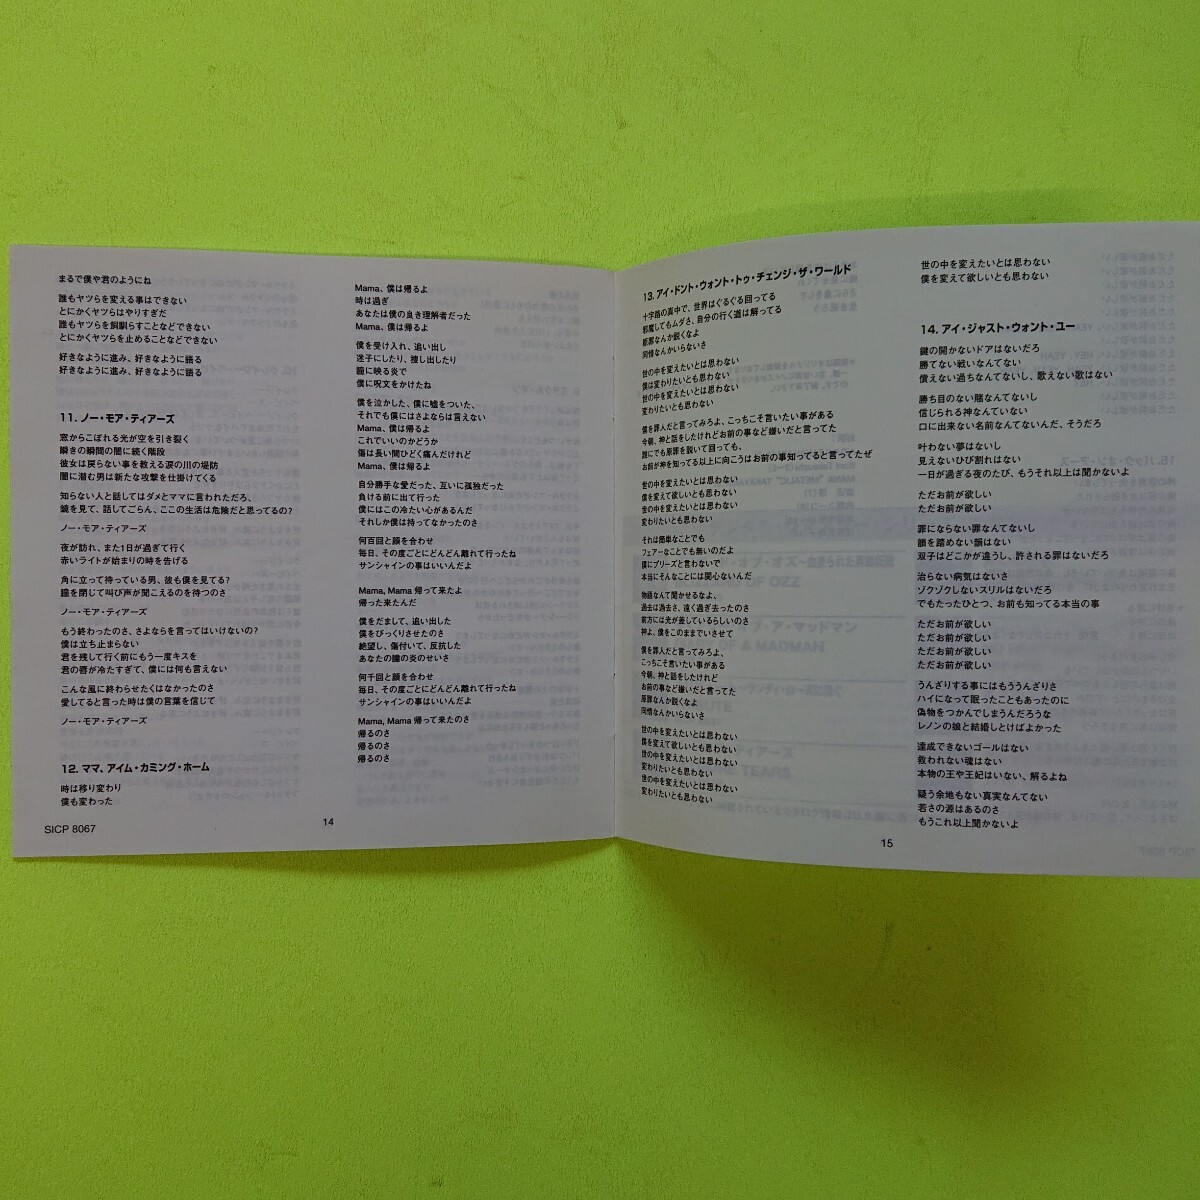 まるで僕や君のようにね
誰もヤツらを変える事はできない
とにかくヤツらはやりすぎだ
誰もヤツらを飼馴らすことなどできない
とにかくヤツらを止めることなどできない
好きなように進み、好きなように語る
好きなように進み、好きなように語る
11. ノー・モア・ティアーズ
窓からこぼれる光が空を引き裂く
瞬きの瞬間の闇に続く階段
彼女は戻らない事を教える涙の川の堤防
闇に潜む男は新たな攻撃を仕掛けてくる
知らない人と話してはダメとママに言われただろ、
鏡を見て、話してごらん、ここの生活は危険だと思ってるの?
ノー・モア・ティアーズ
夜が訪れ、また1日が過ぎて行く
赤いライトが始まりの時を告げる
角に立って待っている男、彼も僕を見てる?
瞳を閉じて叫び声が聞こえるのを待つのさ
ノー・モア・ティアーズ
もう終わったのさ、さよならを言ってはいけないの?
僕は立ち止まらない
君を残して行く前にもう一度キスを
君の唇が冷たすぎて、僕には何も言えない
こんな風に終わらせたくはなかったのさ
愛してると言った時は僕の言葉を信じて
ノー・モア・ティアーズ
12. ママ、アイム・カミング・ホーム
時は移り変わり
僕も変わった
SICP 8067
14
Mama、僕は帰るよ
時は過ぎ
あなたは僕の良き理解者だった
Mama、僕は帰るよ
僕を受け入れ、追い出し
迷子にしたり、捜し出したり
瞳に映る炎で
僕に呪文をかけたね
僕を泣かした、僕に嘘をついた、
それでも僕にはさよならは言えない
Mama、僕は帰るよ
これでいいのかどうか
傷は長い間ひどく痛んだけれど
Mama、僕は帰るよ
自分勝手な愛だった、互いに孤独だった
負ける前に出て行った
僕にはこの冷たい心があるんだ
それしか僕は持ってなかったのさ
何百回と顔を合わせ
毎日、その度ごとにどんどん離れて行ったね
サンシャインの事はいいんだよ
Mama, Mama 帰って来たよ
帰った来たんだ
僕をだまして、追い出した
僕をびっくりさせたのさ
絶望し、傷付いて、反抗した
あなたの瞳の炎のせいさ
何千回と顔を合わせ
毎日、その度ごとにどんどん離れて行ったね
サンシャインの事はいいんだよ
Mama, Mama 帰って来たのさ
帰るのさ
帰るのさ
帰るのさ
13. アイ・ドント・ウォント・トゥ・チェンジ・ザ・ワールド
十字路の真中で、世界はぐるぐる回ってる
邪魔してもムダさ、自分の行く道は解ってる
原罪なんか説くなよ
同情なんかいらないさ
世の中を変えたいとは思わない
僕は変わりたいとも思わない
世の中を変えたいとは思わない
変わりたいとも思わない
僕を罪人だと言ってみろよ、こっちこそ言いたい事がある
今朝、神と話をしたけれどお前の事など嫌いだと言ってた
誰にでも原罪を説いて回っても、
お前が神を知ってる以上に向こうはお前の事知ってると言ってたぜ
世の中を変えたいとは思わない
僕を変えて欲しいとも思わない
世の中を変えたいとは思わない
変わりたいとも思わない
それは簡単なことでも
フェアーなことでも無いのだよ
僕にプリーズと言わないで
本当にそんなことには関心ないんだ
物語なんて聞かせるなよ、
過去は過去さ、遠く過ぎ去ったのさ
前方には光が差しているらしいのさ
神よ、僕をこのままでいさせて
僕を罪人だと言ってみろよ、
こっちこそ言いたい事がある
今朝、神と話をしたけれど
お前の事など嫌いだと言ってた
原罪なんか説くなよ
同情なんかいらないさ
世の中を変えたいとは思わない
僕を変えて欲しいとも思わない
世の中を変えたいとは思わない
変わりたいとも思わない
世の中を変えたいとは思わない
変わりたいとも思わない
世の中を変えたいとは思わない
僕を変えて欲しいとも思わない
14. アイ・ジャスト・ウォント・ユー
鍵の開かないドアはないだろ
勝てない戦いなんてない
償えない過ちなんてないし、歌えない歌はない
勝ち目のない賭なんてないし
信じられる神なんていない
口に出来ない名前なんてないんだ、そうだろ
叶わない夢はないし
見えないひび割れはない
一日が過ぎる夜のたび、もうそれ以上は聞かないよ
ただお前が欲しい
ただお前が欲しい
罪にならない罪なんてないし
韻を踏めない韻はない
双子はどこかが違うし、許される罪はないだろ
治らない病気はないさ
ゾクゾクしないスリルはないだろ
でもたったひとつ、お前も知ってる本当の事
ただお前が欲しい
ただお前が欲しい
ただお前が欲しい
ただお前が欲しい
うんざりする事にはもううんざりさ
ハイになって眠ったこともあったのに
偽物をつかんでしまうんだろうな
レノンの娘と結婚しとけばよかった
達成できないゴールはない
救われない魂はない
本物の王や王妃はいない、解るよね
疑う余地もない真実なんてない
若さの源はあるのさ
もうこれ以上聞かないよ
15